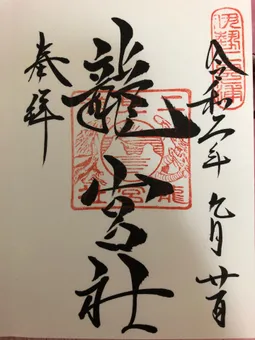 令和二年九月廿日
龍宮社
奉拝